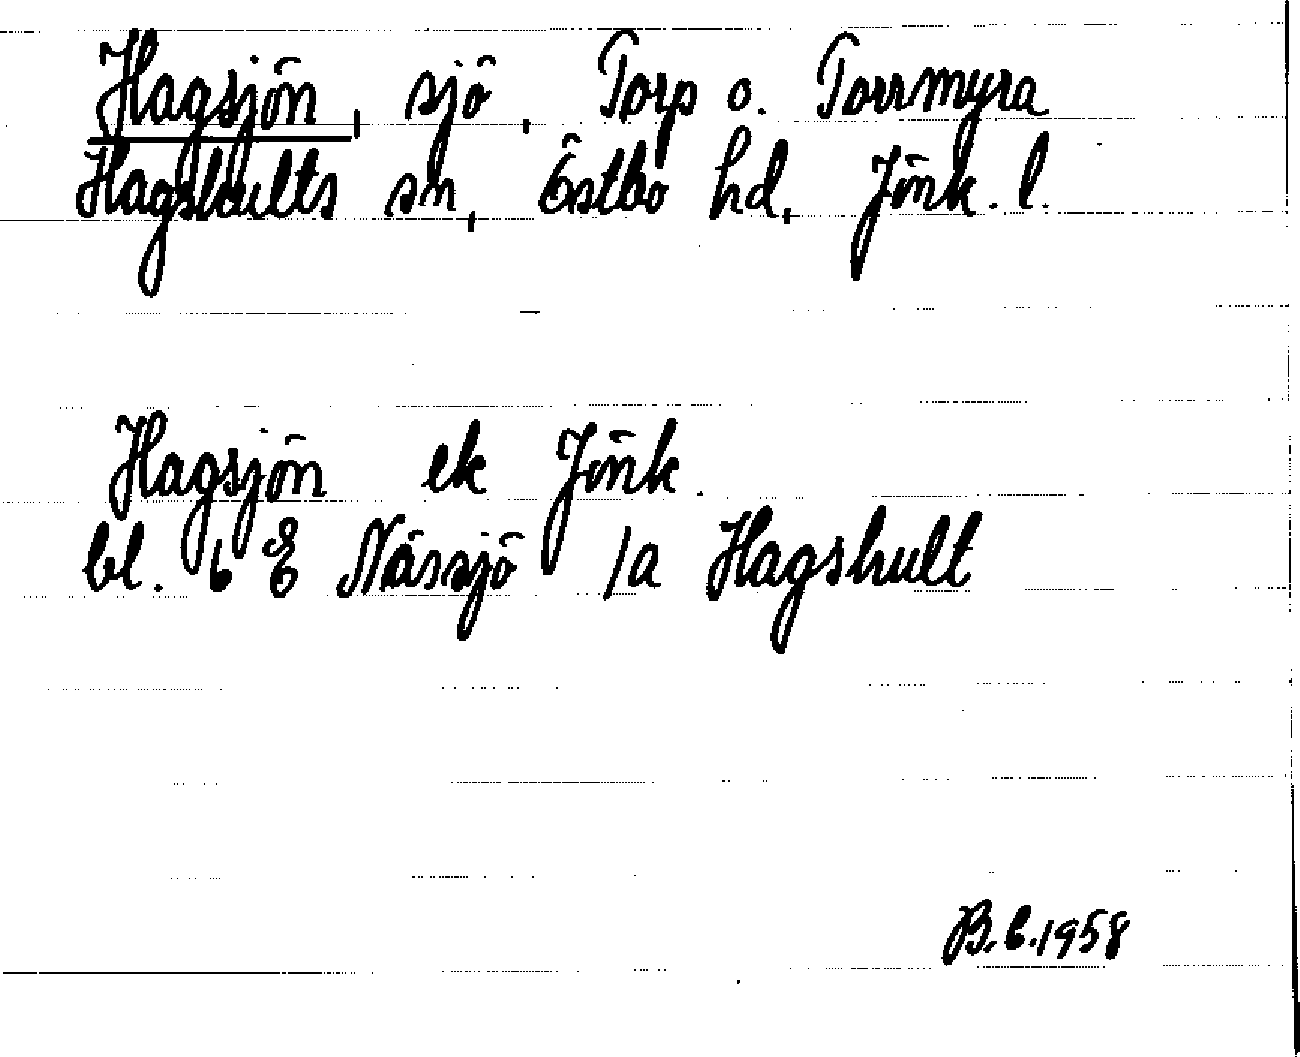 Hagsjön, sjö, Torp o. Torrmyra
Hagshults sn, Östbo hd, Jönk. l.
Hagsjön ek Jönk.
bl. 6 E Nässjö 1a Hagshult
B.C.1958